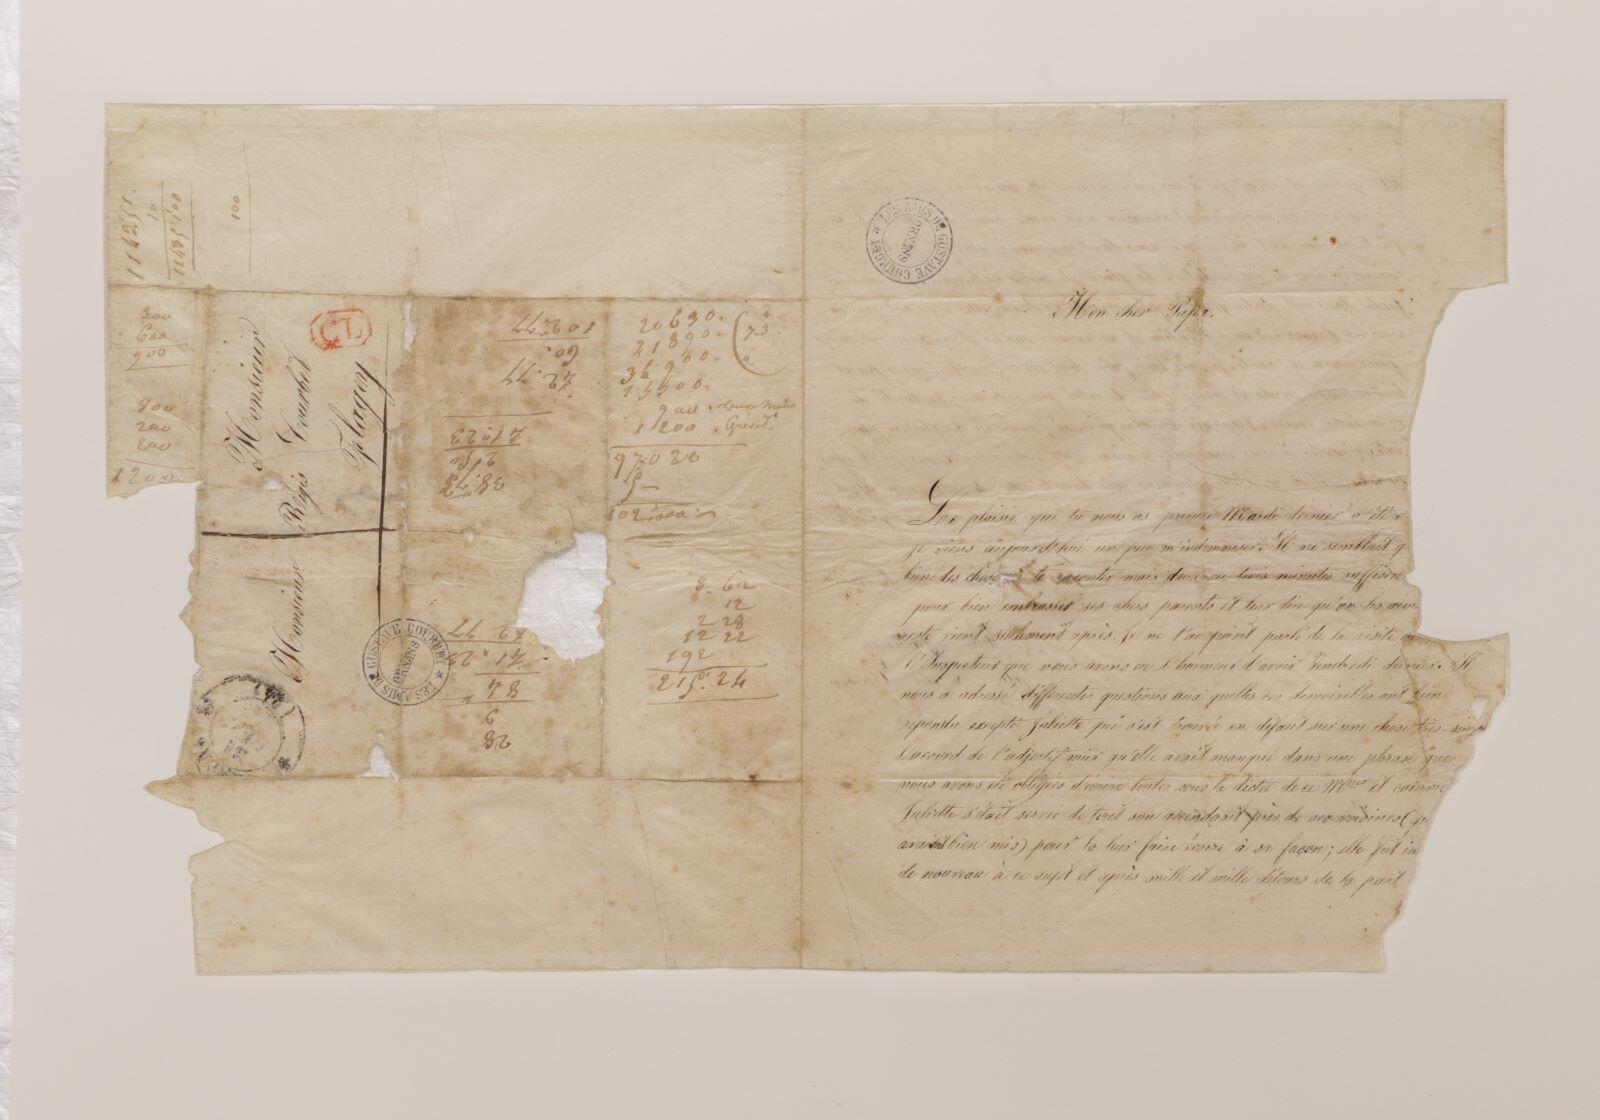 114251.
10
1142500
100
300
600
900
800
200
200
1200
Monsieur
Monsieur Régis Courbet
Flagey
CL
LES AMIS DE GUSTAVE COURBET
ORNANS
102.77
60.
42.77
41.23
2.50
38.73
42 77
41.2
84
9
28
20630.
21890.
36900.
15500.
900.
1200.
97020
5
102,000
8. 62
12
2 28
12 22
192
215. 24
LES AMIS DE GUSTAVE COURBET
ORNANS
Mon cher Papa.
Le plaisir que tu nous as procuré Mardi dernier a été
je viens aujourd'hui un peu m'indemniser. Il me semblait q
bien des choses à te raconter mais deux ou trois minutes suffisent
pour bien embrasser ses chers parents et leur dire qu'on les aime
reste vient seulement après. Je ne t'ai point parlé de la visite
l'Inspecteur que nous avons eu l'honneur d'avoir Vendredi dernier. Il
nous a adressé différentes questions aux quelles ces demoiselles ont bien
répondu excepté Juliette qui s'est trouvée en défaut sur une chose très simp
l'accord de l'adjectif mûr qu'elle avait manqué dans une phrase que
nous avons été obligées d'écrire toutes sous la dictée de ce Mr et comme
Juliette s'était servie de tout son ascendant près de ses voisines (qu
avaient bien mis) pour la leur faire écrire à sa façon; elle fut in
de nouveau à ce sujet et après mille et mille détours de la part